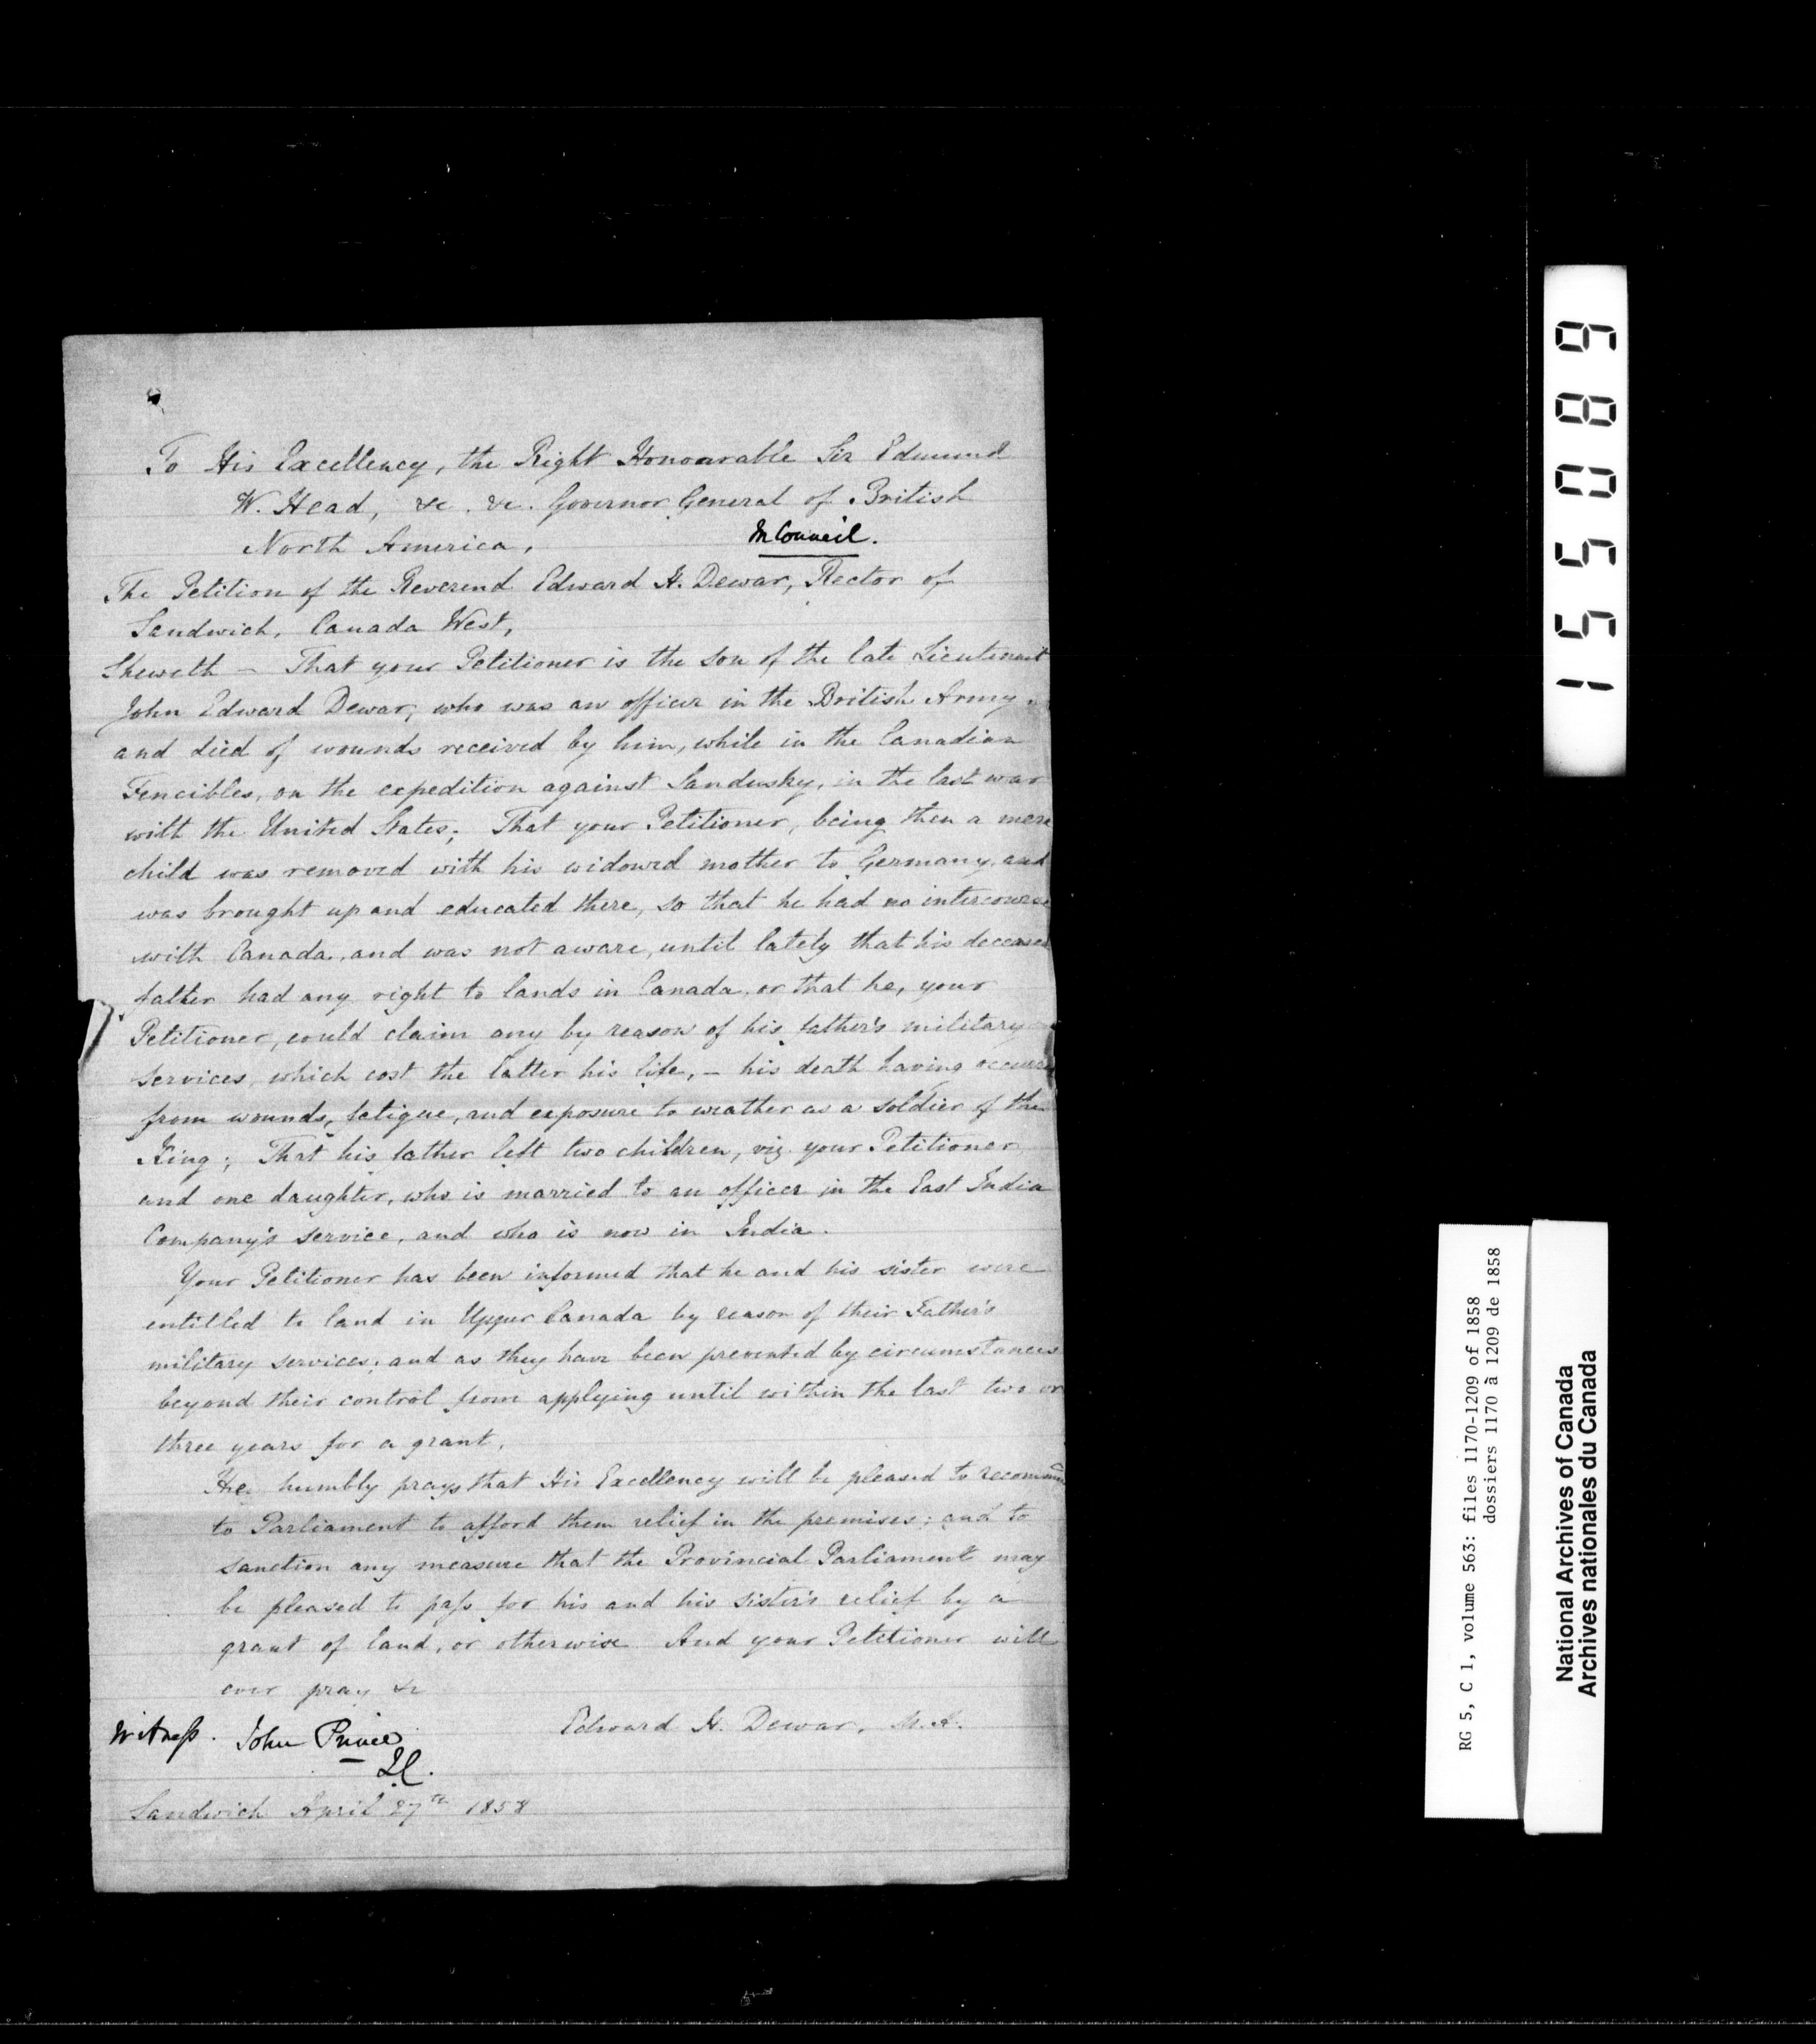 To His Excellency, the Right Honourable Sir Edmund
W. Head, &c. &c. Governor General of British
North America, In Council.
The Petition of the Reverend Edward H. Dewar, Rector of
Sandwich, Canada West,
Sheweth – That your Petitioner is the son of the late Lieutenant
John Edward Dewar, who was an officer in the British Army,
and died of wounds received by him, while in the Canadian
Fencibles, on the expedition against Sandusky, in the last war
with the United States; That your Petitioner, being then a mere
child was removed with his widowed mother to Germany, and
was brought up and educated there, so that he had no intercourse
with Canada, and was not aware, until lately that his deceased
father had any right to lands in Canada, or that he, your
Petitioner, could claim any by reason of his father's military
services, which cost the latter his life, – his death having occurred
from wounds, fatigue, and exposure to weather as a soldier of the
King; That his father left two children, viz. your Petitioner
and one daughter, who is married to an officer in the East India
Company's service, and who is now in India.
Your Petitioner has been informed that he and his sister were
entitled to land in Upper Canada by reason of their Father's
military services; and as they have been prevented by circumstances
beyond their control from applying until within the last two or
three years for a grant,
He humbly prays that His Excellency will be pleased to recommend
to Parliament to afford them relief in the premises; and to
sanction any measure that the Provincial Parliament may
be pleased to pass for his and his sister's relief by a
grant of land, or otherwise. And your Petitioner will
ever pray &c
Witness. John Prince Edward H. Dewar, M.A.
Q.C.
Sandwich April 27th 1858
155089
RG 5, C 1, volume 563: files 1170-1209 of 1858
dossiers 1170 à 1209 de 1858
National Archives of Canada
Archives nationales du Canada